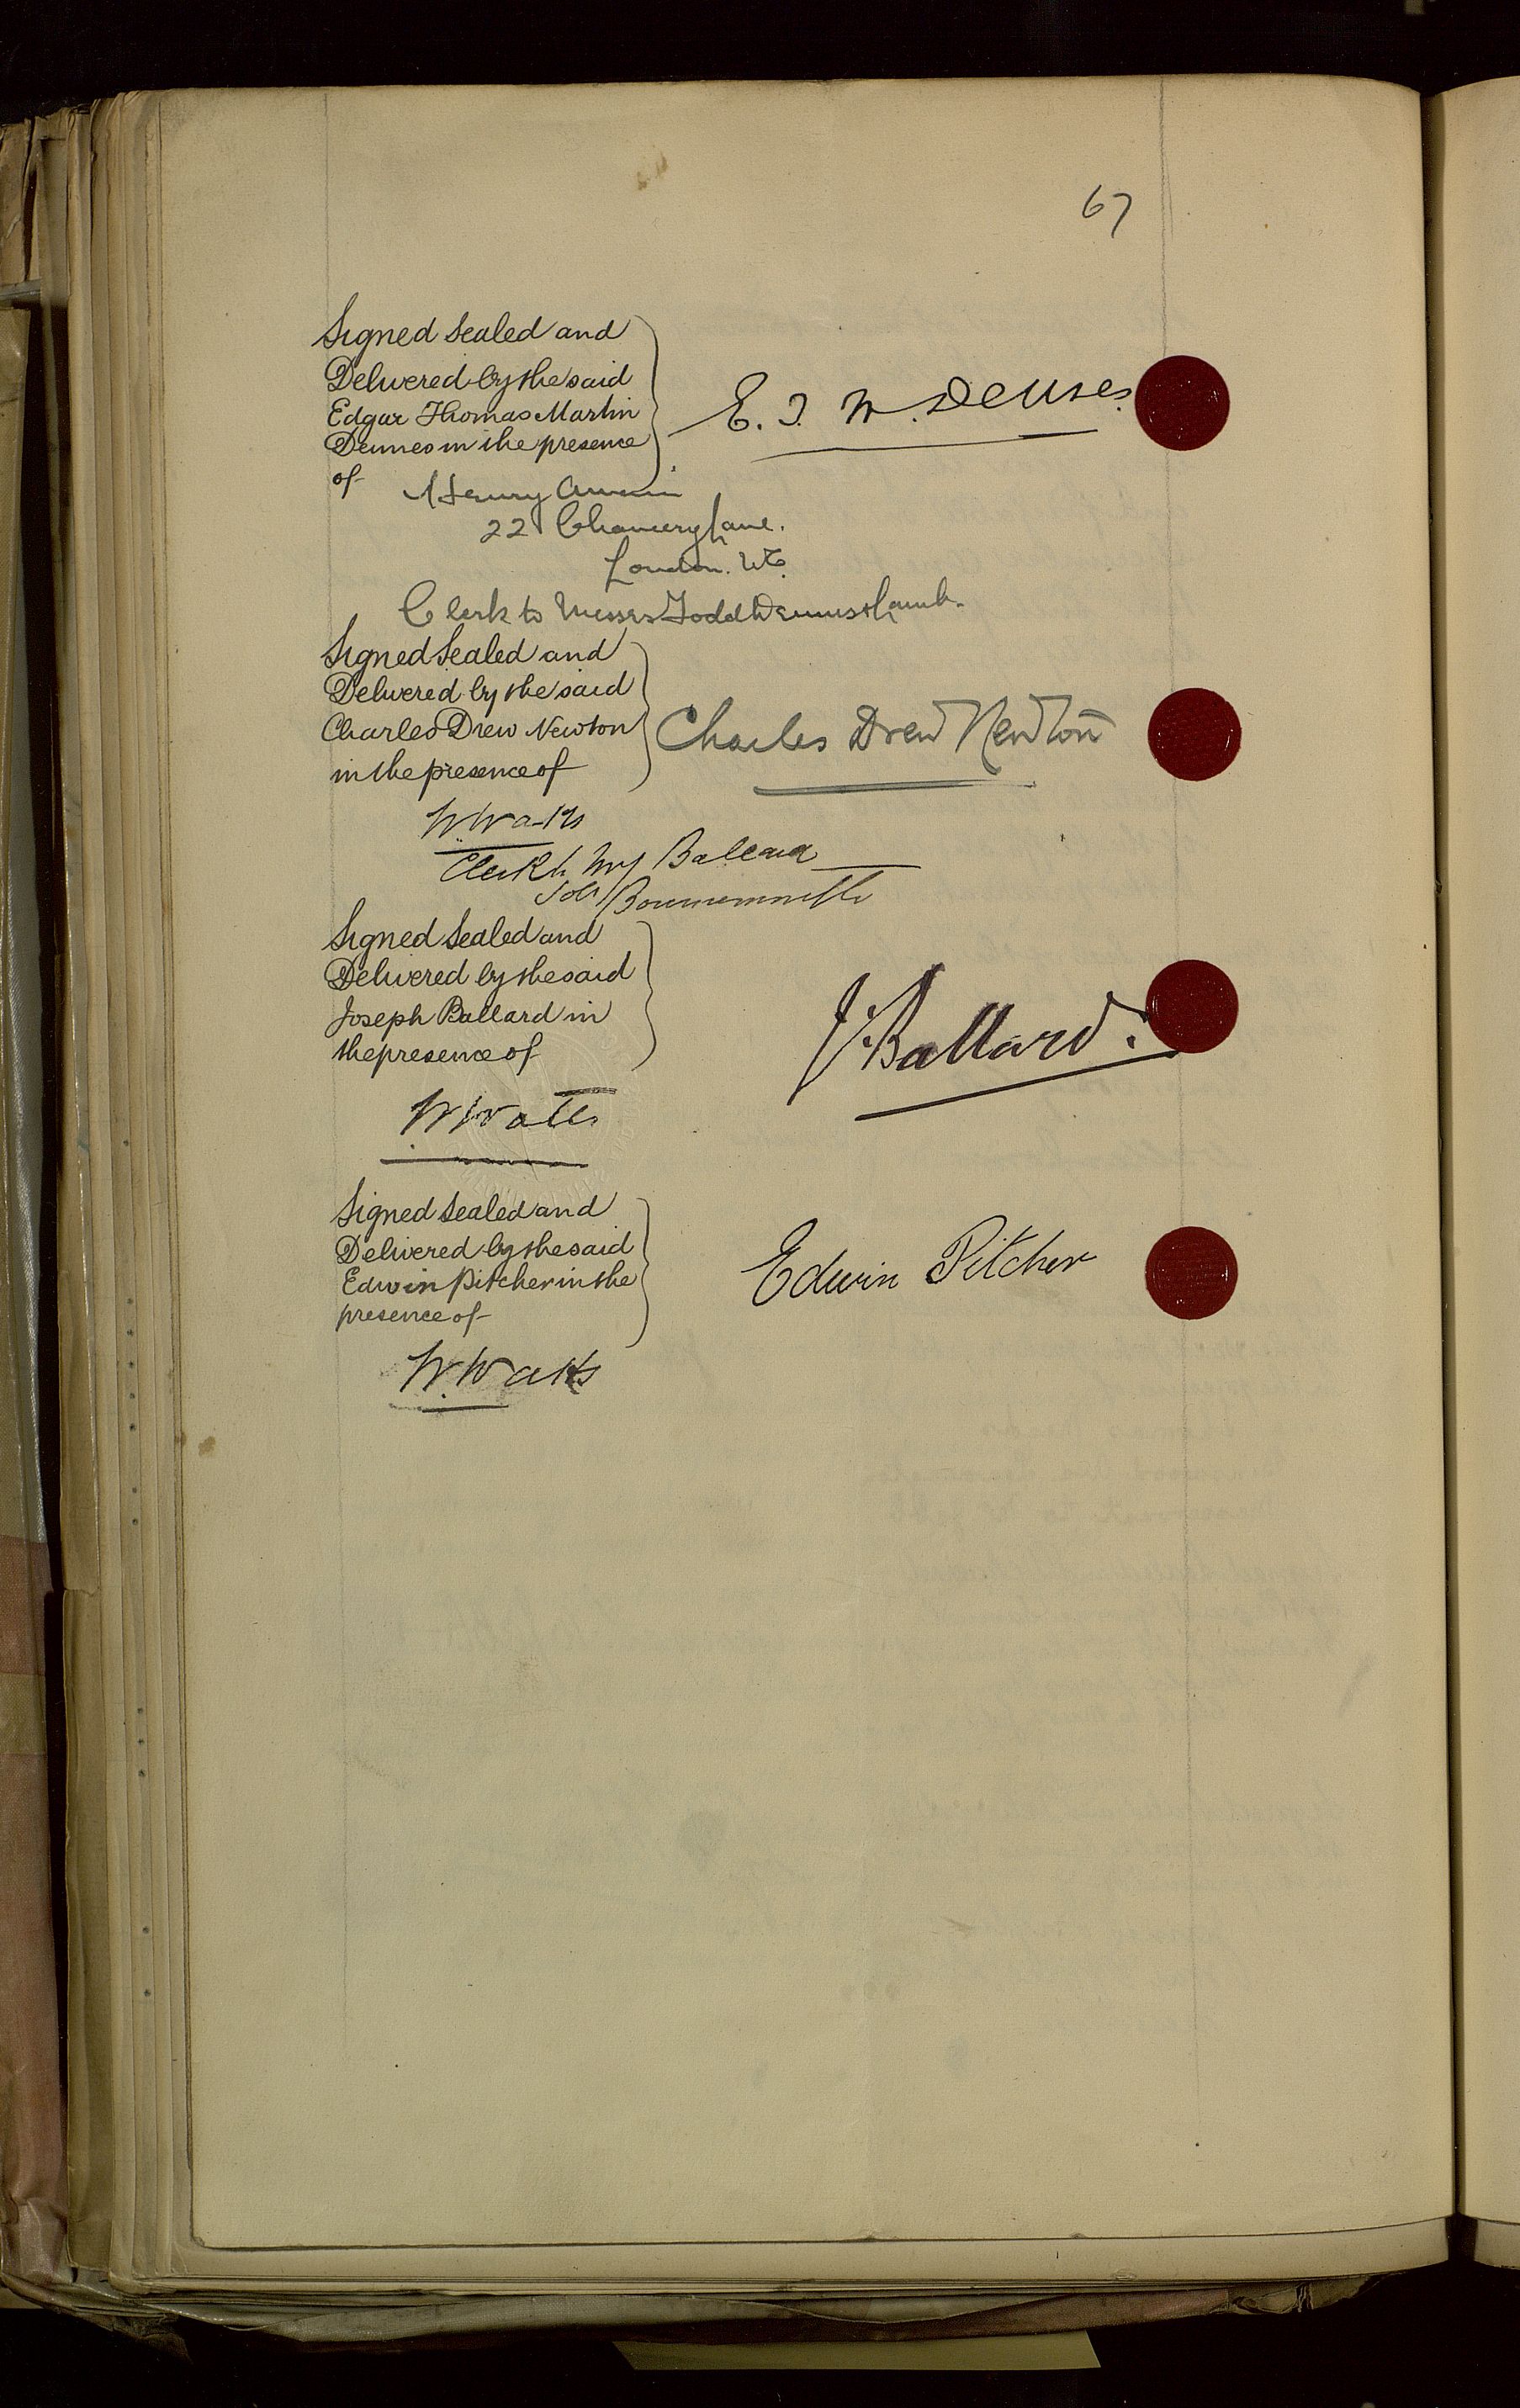 67
Signed Sealed and
Delivered by the said
Edgar Thomas Martin
Dennes in the presence
of
E. T. M. Dennes.
Henry
22 Chancery Lane.
London. W.C.
Clerk to Messrs Todd Dennes & Lamb.
Signed Sealed and
Delivered by the said
Charles Drew Newton
in the presence of
Charles Drew Newton
W. Watts
Clerk to Mr J Ballard
Solr Bournemouth
Signed Sealed and
Delivered by the said
Joseph Ballard in
the presence of
J. Ballard.
W. Watts
Signed Sealed and
Delivered by the said
Edwin Pitcher in the
presence of
Edwin Pitcher
W. Watts